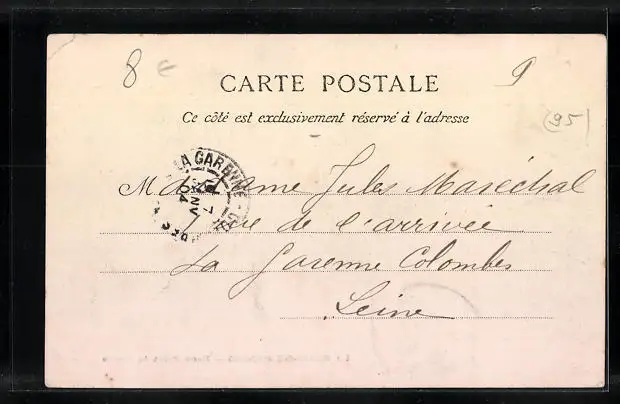 8 €
9
CARTE POSTALE
Ce côté est exclusivement réservé à l'adresse
(95)
LA GARENNE
7
JANV
04
Madame Jules Maréchal
rue de l'arrivée
La Garenne Colombes
Seine